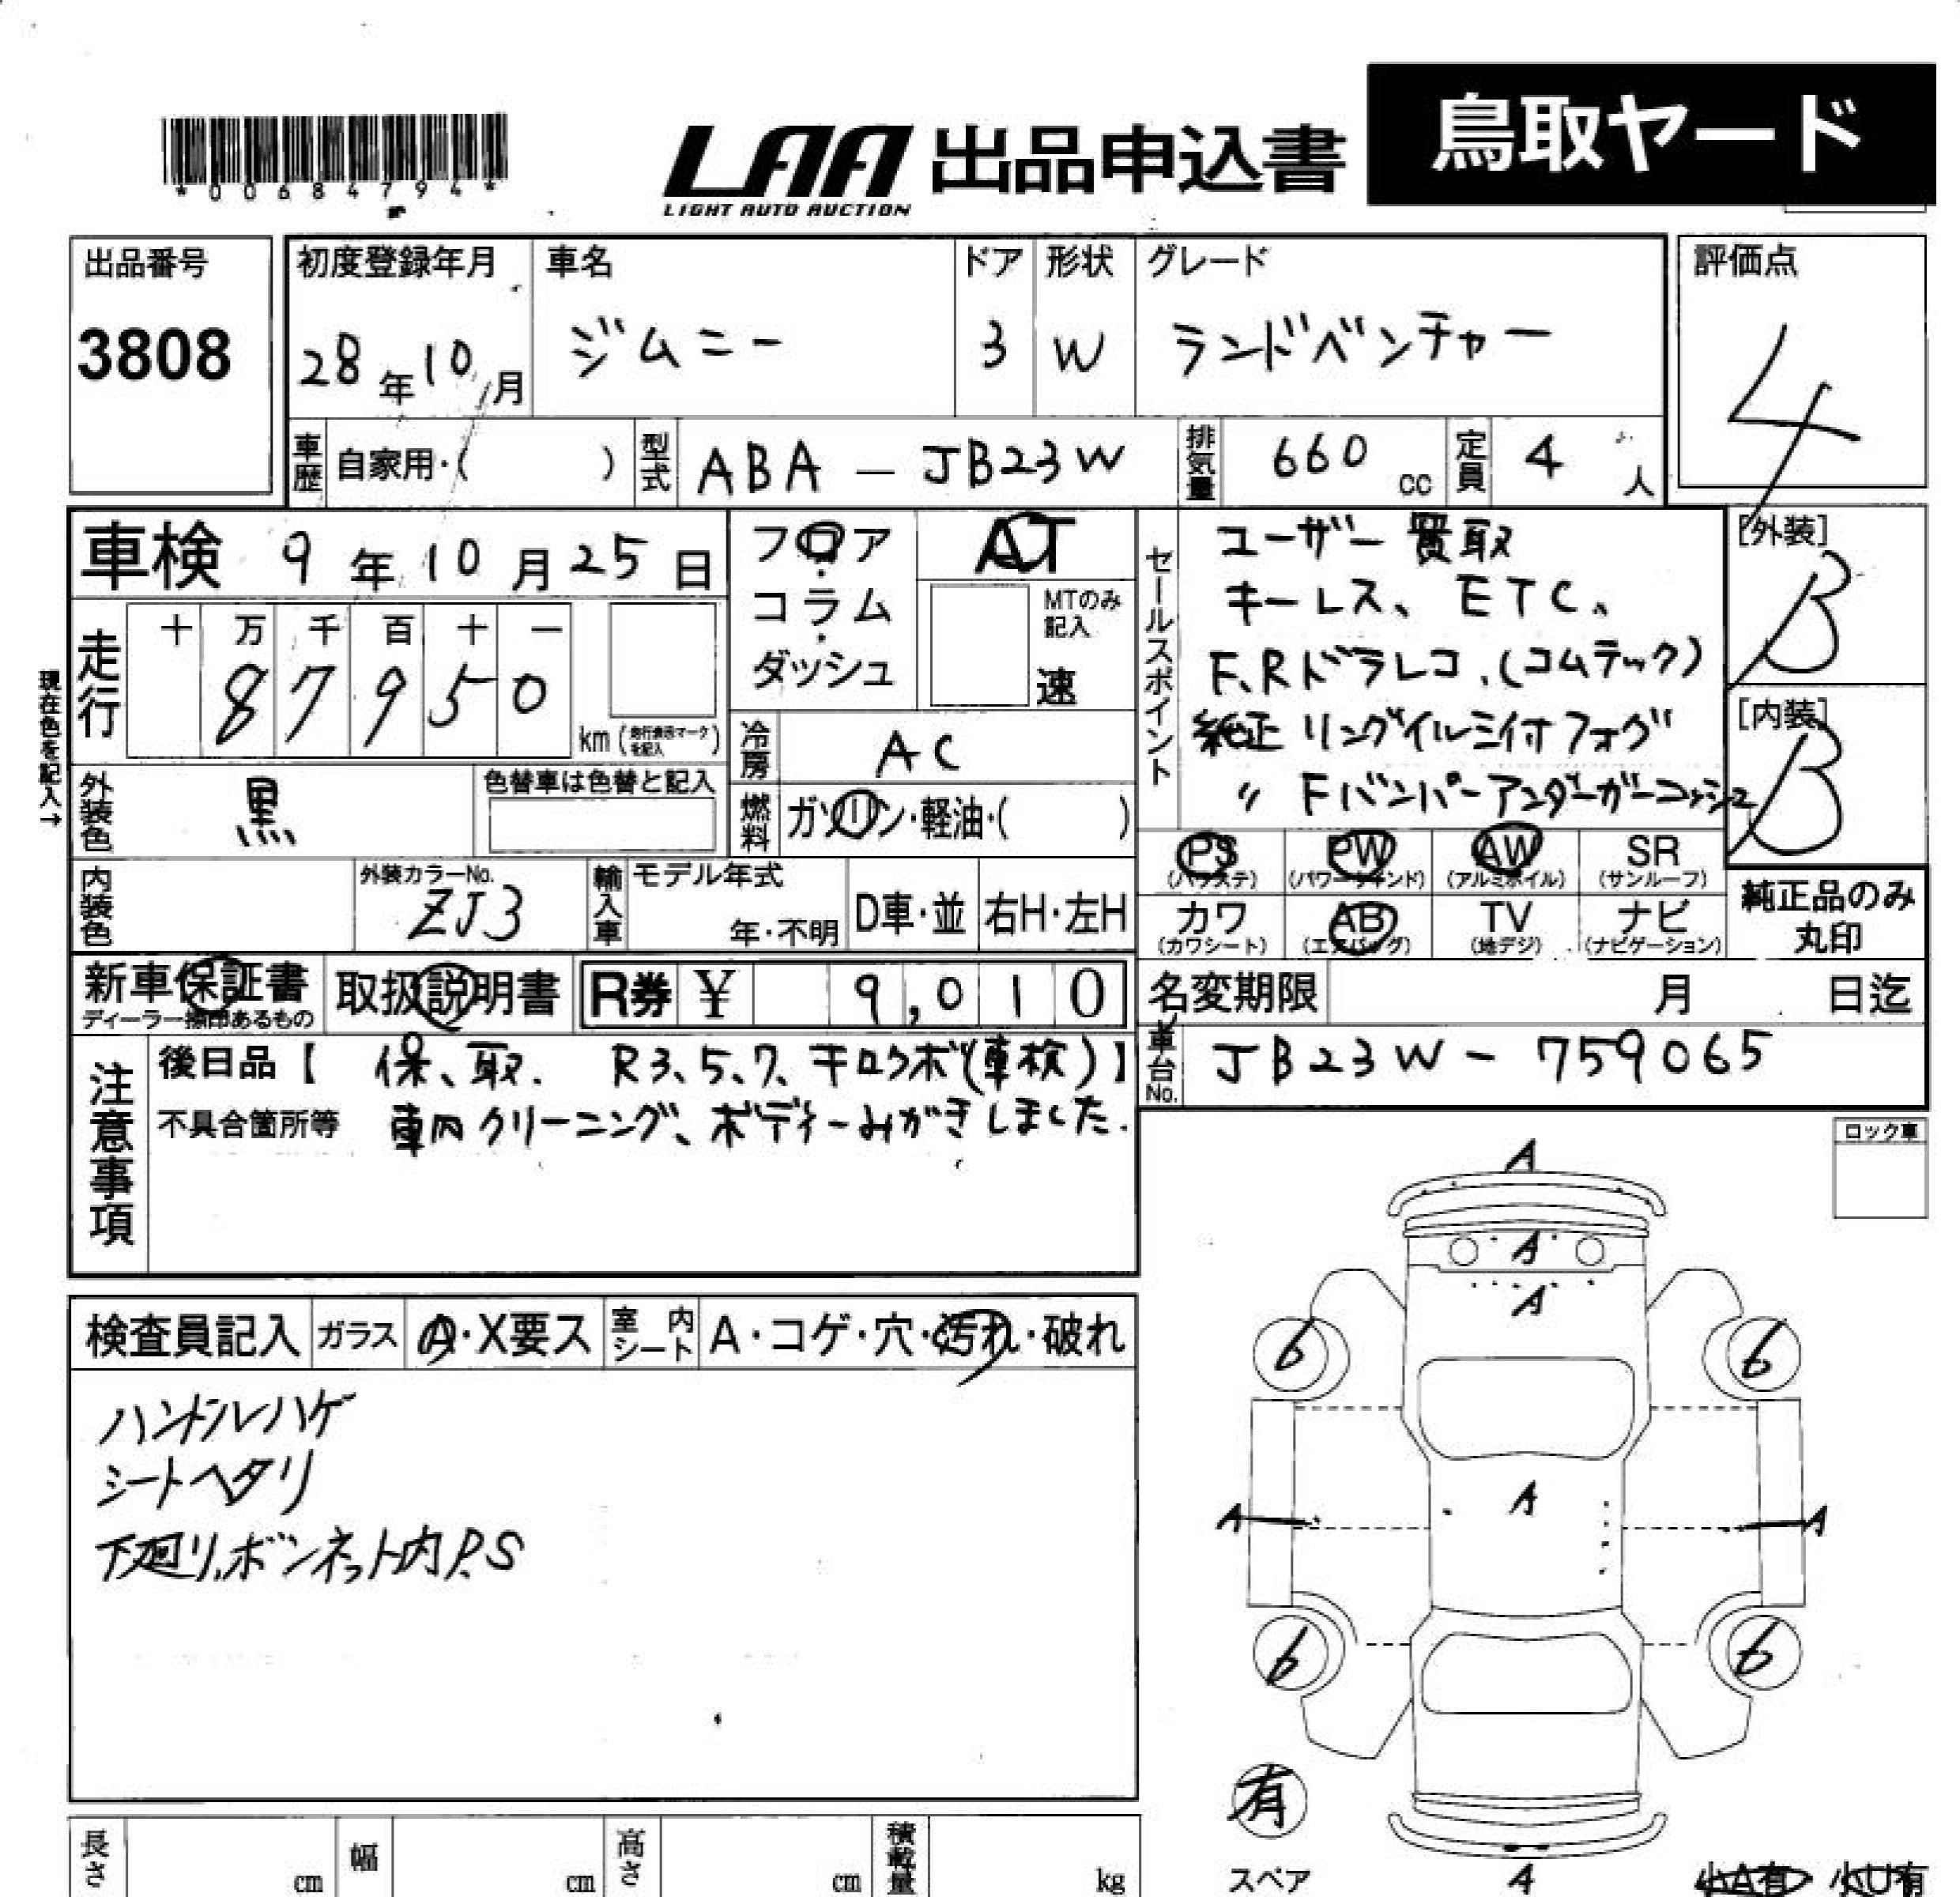 *00684794*
LAA 出品申込書 鳥取ヤード
LIGHT AUTO AUCTION
出品番号 初度登録年月 車名 ドア 形状 グレード 評価点
3808 28年10月 ジムニー 3 W ランドベンチャー 4
車歴 自家用・( ) 型式 ABA-JB23W 排気量 660cc 定員 4人
車検 9年10月25日 フロア・コラム・ダッシュ AT
MTのみ記入 速
現在色を記入→
走行 十 万 千 百 十 一
8 7 9 5 0 km(走行表示マークを記入)
冷房 AC
外装色 黒 色替車は色替と記入
燃料 ガソリン・軽油・( )
内装色 外装カラーNo. ZJ3 輸入車 モデル年式 年・不明 D車・並 右H・左H
新車保証書 取扱説明書 R券 ¥ 9,010
ディーラー捺印あるもの
セールスポイント
ユーザー買取
キーレス、ETC、
F、Rドラレコ、(コムテック)
純正 リングイルミ付フォグ
〃 Fバンパーアンダーガーニッシュ
[外装] B
[内装] B
PS(パワステ) PW(パワーウインド) AW(アルミホイル) SR(サンルーフ)
カワ(カワシート) AB(エアバッグ) TV(地デジ) ナビ(ナビゲーション)
純正品のみ丸印
名変期限 月 日迄
車台No. JB23W-759065
注意事項
後日品【 保、取. R3、5、7、キロクボ(車検)】
不具合箇所等 車内クリーニング、ボディーみがきしました.
ロック車
検査員記入 ガラス A・X要ス 室内シート A・コゲ・穴・汚れ・破れ
ハンドルハゲ
シートヘタリ
下廻り、ボンネット内P.S
A
A
A
6 6
A
A A
6 6
有
スペア
A
小A有 小U有
長さ cm 幅 cm 高さ cm 積載量 kg